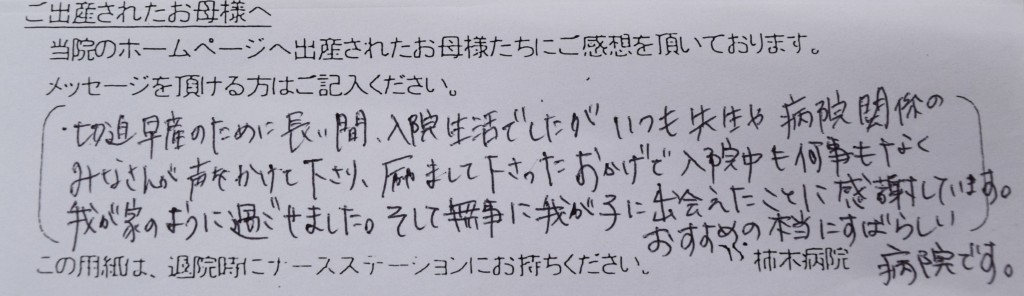 ご出産されたお母様へ
当院のホームページへ出産されたお母様たちにご感想を頂いております。
メッセージを頂ける方はご記入ください。
・切迫早産のために長い間、入院生活でしたが いつも先生や 病院関係の
みなさんが声をかけて下さり、励まして下さったおかげで入院中も何事もなく
我が家のように過ごせました。そして無事に我が子に出会えたことに感謝しています。
おすすめの本当にすばらしい
病院です。
この用紙は、退院時にナースステーションにお持ちください。 柿木病院